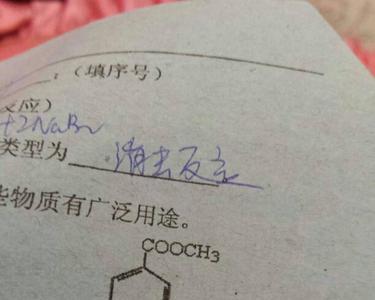 ；（填序号）
反应）
+2NaBr
类型为 消去反应
些物质有广泛用途。
COOCH3